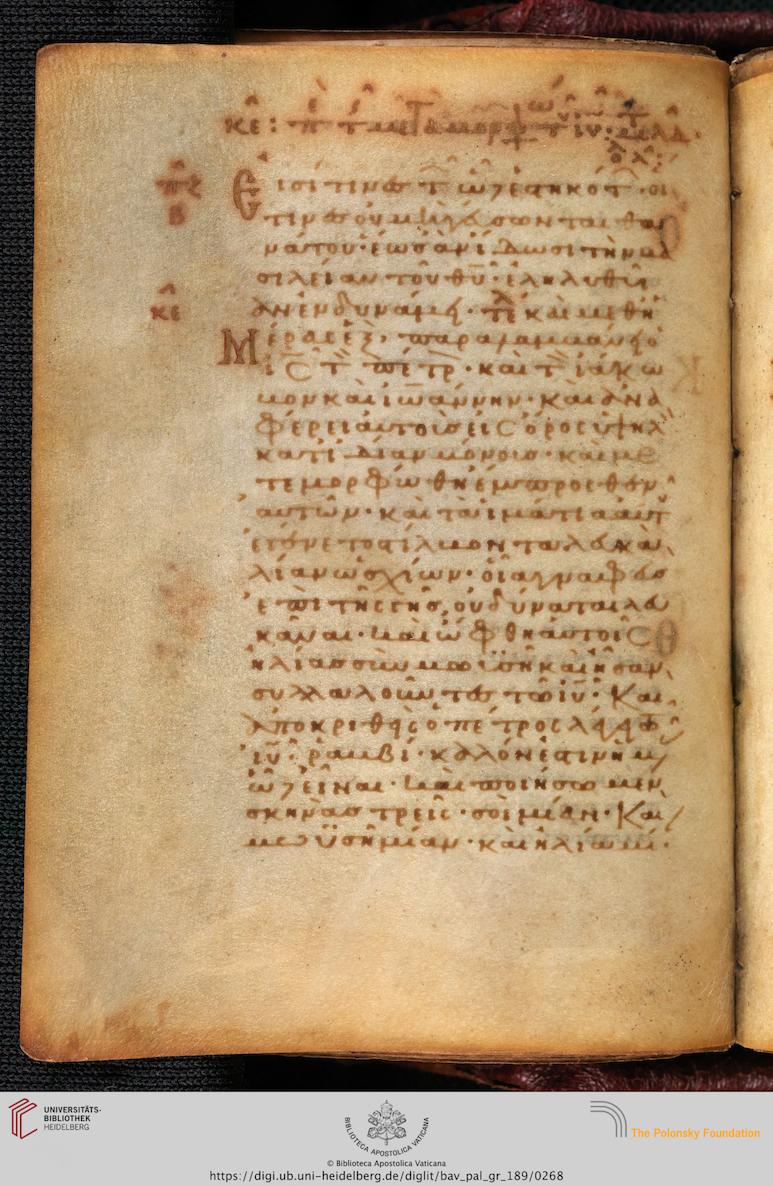 κε:
εἰσί τινες τ ὧδε ἑστηκότ· οἱ
τινες οὐ μὴ γεύσωνται θα
νάτου· ἕως ἂν ἴδωσι τὴν βα
σιλείαν τοῦ θυ· ἐληλυθυῖ
αν ἐν δυνάμει· καὶ μεθ
ἡμέρας ἓξ· παραλαμβάνει ὁ
ις τ πέτρ· καὶ τ ἰάκω
βον καὶ ἰωάννην· καὶ ἀνα
φέρει αὐτοὺς εἰς ὄρος ὑψηλ
κατιδίαν μόνους· καὶ με
τεμορφώθη ἔμπροσθεν
αὐτῶν· καὶ τὰ ἱμάτια αὐτ
ἐγένετο στίλβοντα λευκὰ
λίαν ὡς χιὼν· οἷα γναφεὺς
ἐπὶ τῆς γῆς οὐ δύναται λευ
κᾶναι· καὶ ὤφθη αὐτοῖς
ἠλίας σὺν μωϋσῆ καὶ ἦσαν
συλλαλοῦντες τῶ ιυ· Και
ἀποκριθεὶς ὁ πέτρος λέγει τῶ
ιυ· ραμβί· καλόν ἐστιν ἡμ
ὧδε εἶναι· καὶ ποιήσωμεν
σκηνὰς τρεῖς· σοὶ μίαν· Και
μωϋσῆ μίαν· καὶ ἠλία μι·
κε
UNIVERSITÄTS-
BIBLIOTHEK
HEIDELBERG
BIBLIOTECA APOSTOLICA VATICANA
The Polonsky Foundation
© Biblioteca Apostolica Vaticana
https://digi.ub.uni-heidelberg.de/diglit/bav_pal_gr_189/0268